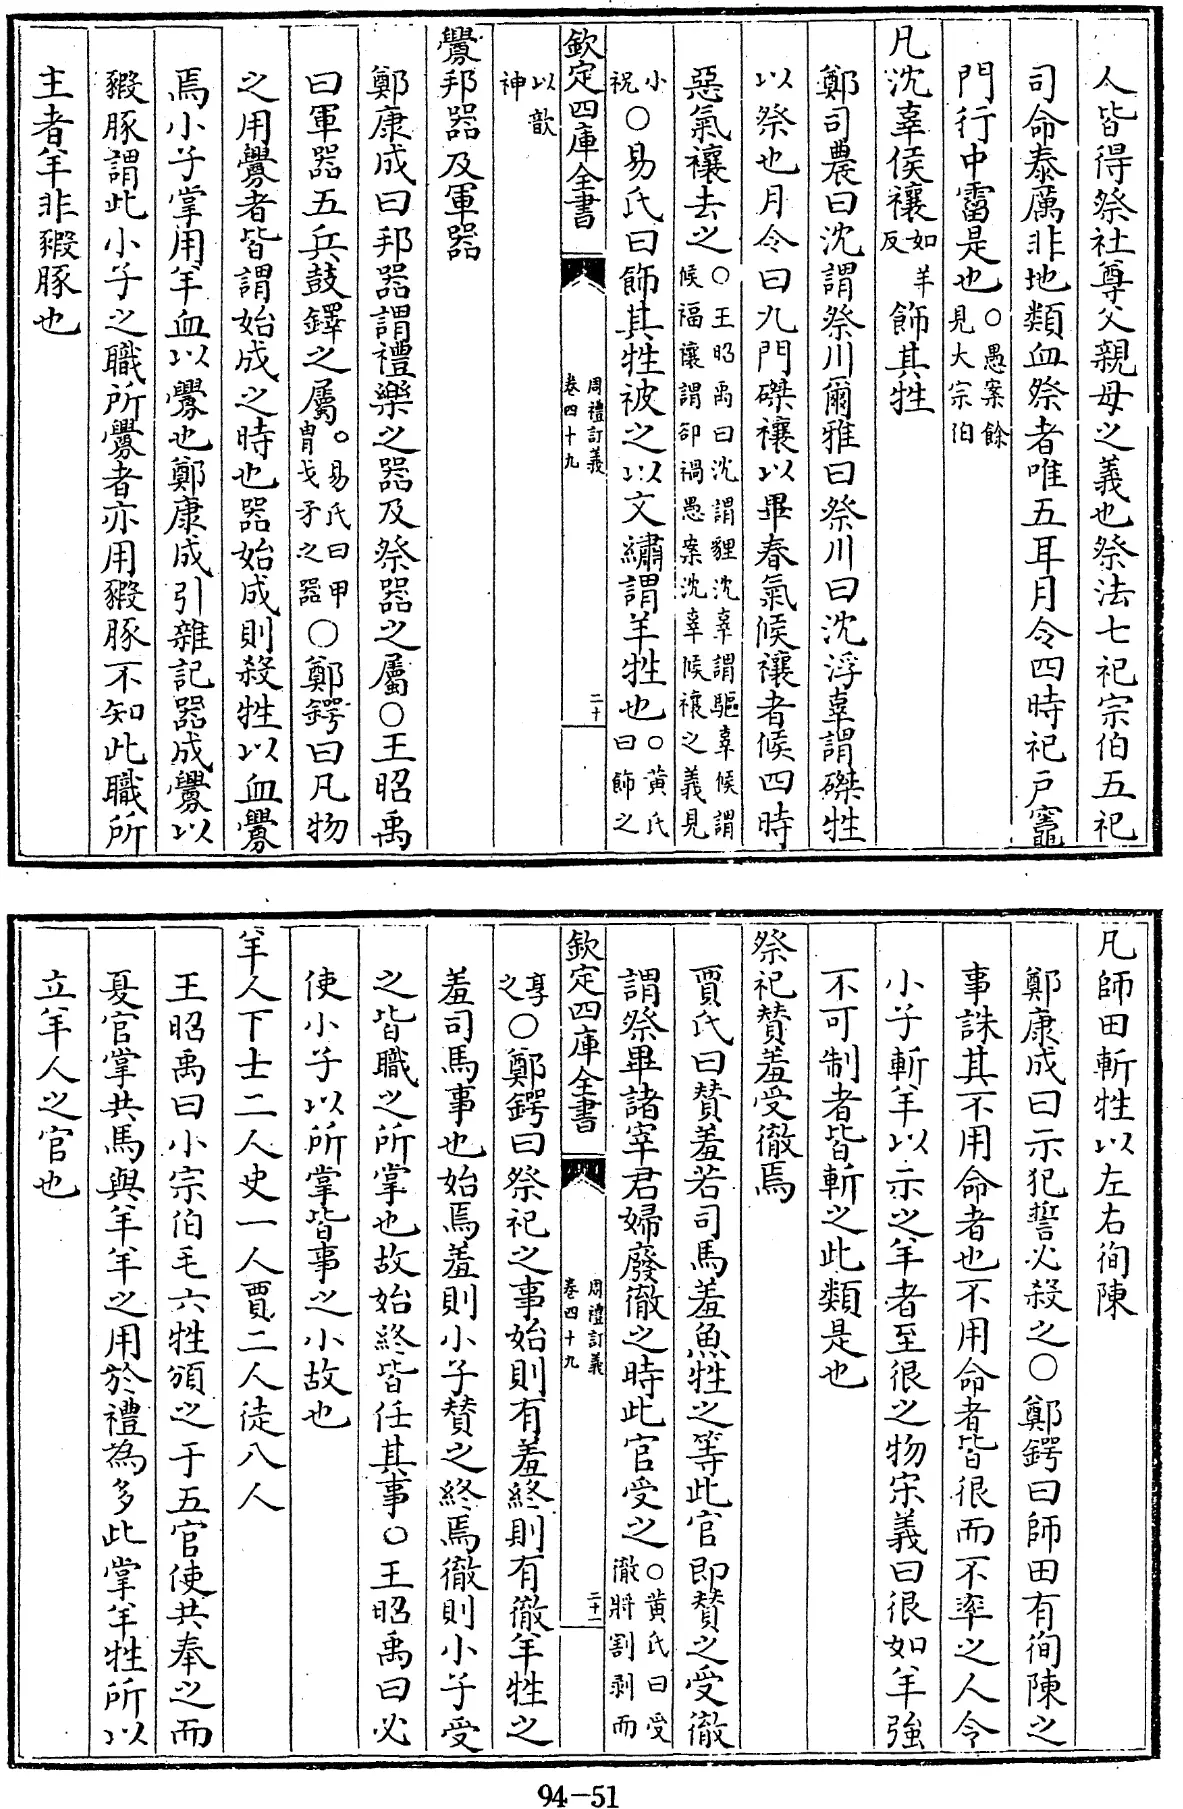 人皆得祭社尊父親母之義也祭法七祀宗伯五祀
司命泰厲非地類血祭者唯五耳月令四時祀戸竈
門行中霤是也○愚案餘見大宗伯
凡沈辜侯禳如羊反飾其牲
鄭司農曰沈謂祭川爾雅曰祭川曰沈浮辜謂磔牲
以祭也月令曰九門磔禳以畢春氣候禳者候四時
惡氣禳去之○王昭禹曰沈謂貍沈辜謂驅辜候謂候福禳謂卻禍愚案沈辜候禳之義見
小祝○易氏曰飾其牲被之以文繡謂羊牲也○黄氏曰飾之
欽定四庫全書
周禮訂義
卷四十九
二十
以歆神
釁邦器及軍器
鄭康成曰邦器謂禮樂之器及祭器之屬○王昭禹
曰軍器五兵鼓鐸之屬○易氏曰甲胄戈矛之器○鄭鍔曰凡物
之用釁者皆謂始成之時也器始成則殺牲以血釁
焉小子掌用羊血以釁也鄭康成引雜記器成釁以
豭豚謂此小子之職所釁者亦用豭豚不知此職所
主者羊非豭豚也
凡師田斬牲以左右徇陳
鄭康成曰示犯誓必殺之○鄭鍔曰師田有徇陳之
事誅其不用命者也不用命者皆很而不率之人令
小子斬羊以示之羊者至很之物宋義曰很如羊強
不可制者皆斬之此類是也
祭祀贊羞受徹焉
賈氏曰贊羞若司馬羞魚牲之等此官即贊之受徹
謂祭畢諸宰君婦廢徹之時此官受之○黄氏曰受徹將割剥而
欽定四庫全書
周禮訂義
卷四十九
二十一
享之○鄭鍔曰祭祀之事始則有羞終則有徹羊牲之
羞司馬事也始焉羞則小子贊之終焉徹則小子受
之皆職之所掌也故始終皆任其事○王昭禹曰必
使小子以所掌皆事之小故也
羊人下士二人史一人賈二人徒八人
王昭禹曰小宗伯毛六牲頒之于五官使共奉之而
夏官掌共馬與羊羊之用於禮為多此掌羊牲所以
立羊人之官也
94-51